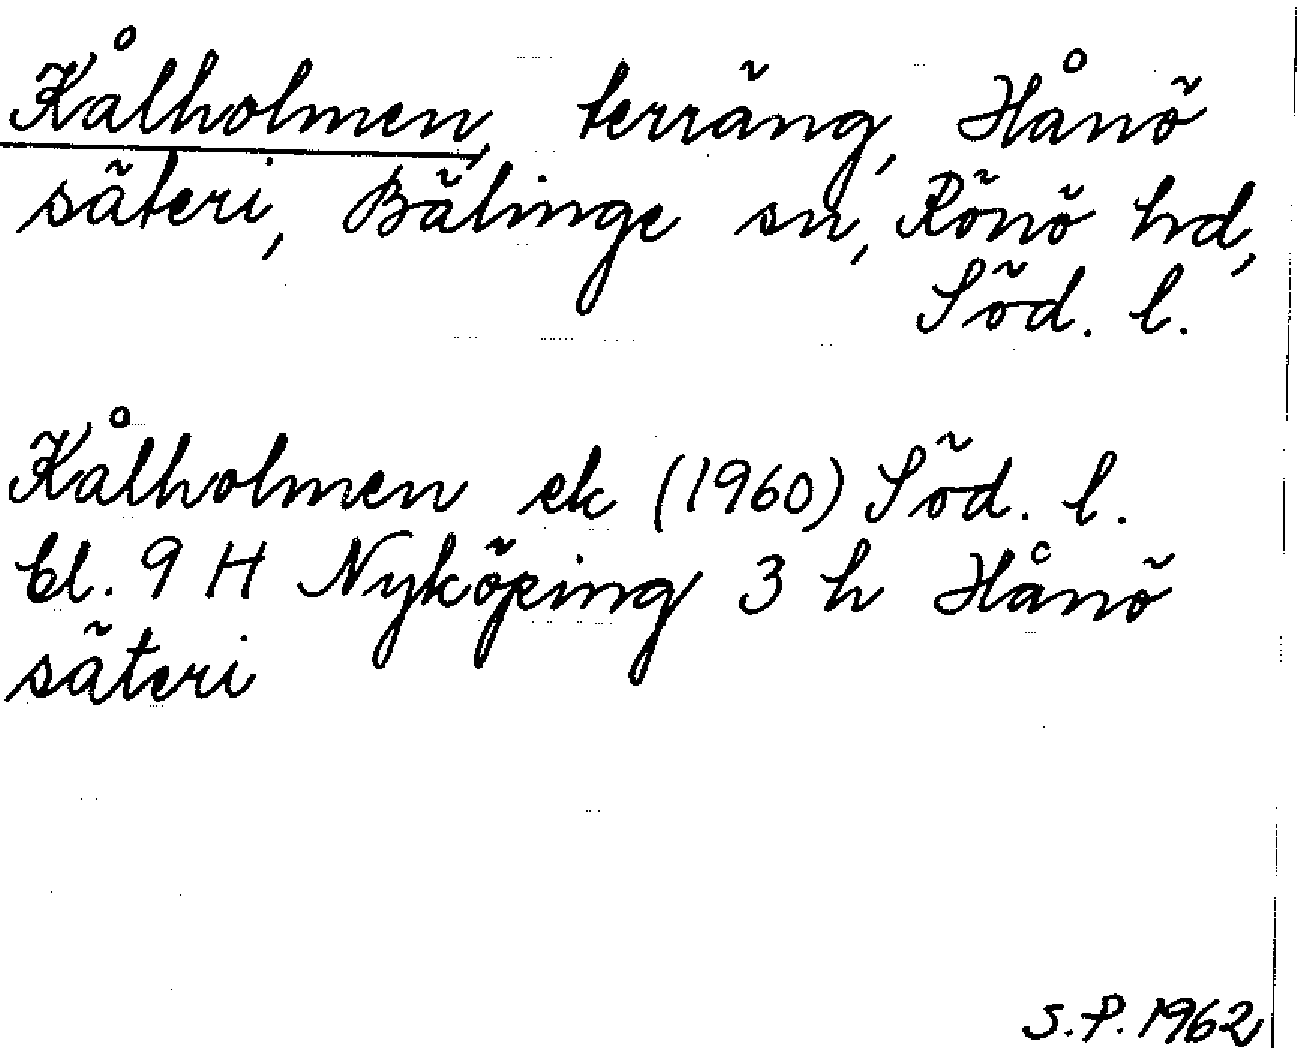 Kålholmen, terräng, Hånö
säteri, Bälinge sn, Rönö hd,
Söd. l.
Kålholmen ek (1960) Söd. l.
bl. 9 H Nyköping 3 h Hånö
säteri
S.P. 1962